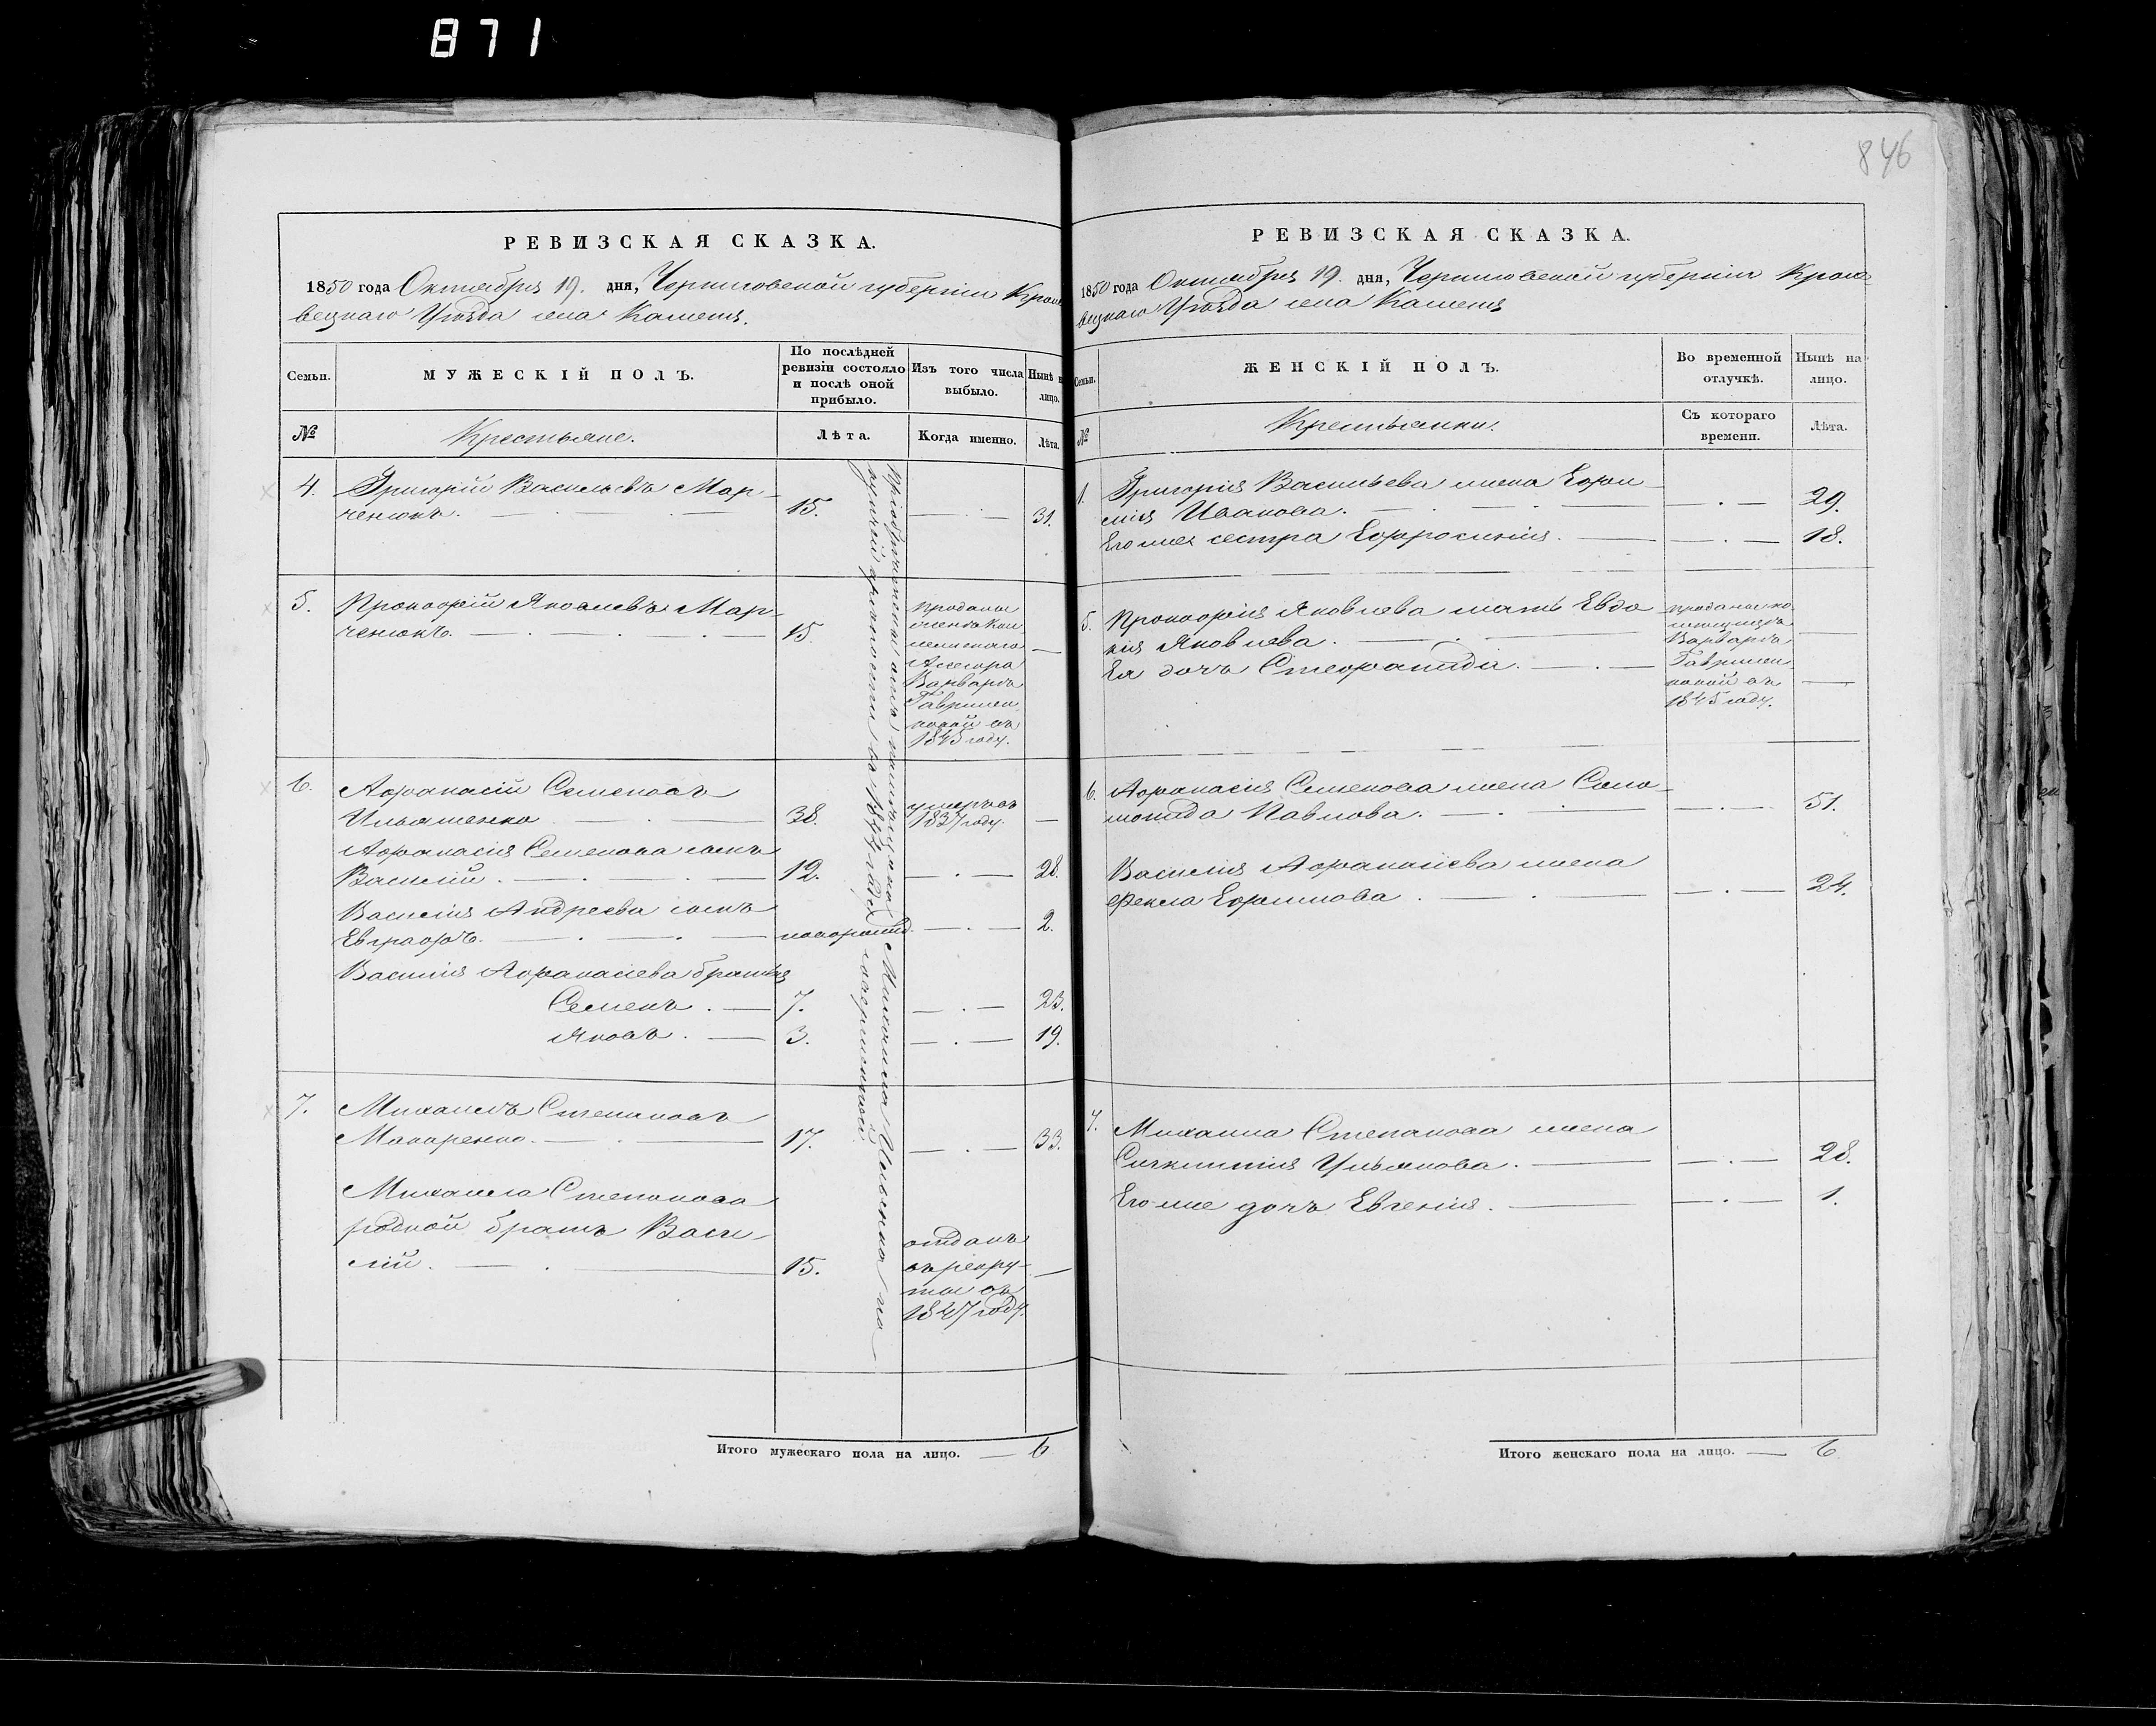 871
846
РЕВИЗСКАЯ СКАЗКА.
1850 года Октября 19. дня, Черниговской губерніи Кроле
вецкаго Уѣзда села Каменя.
Семьи.
МУЖЕСКІЙ ПОЛЪ.
По послѣдней
ревизіи состояло
и послѣ оной
прибыло.
Изъ того числа
выбыло.
Нынѣ н
лицо.
№
Крестьяне.
Лѣта.
Когда именно.
Лѣта.
4.
Григорій Васильевъ Мар-
ченокъ.
15.
31.
5.
Прокофій Яковлевъ Мар-
ченокъ.
15.
проданъ
Ассесора
Варварѣ
Гаврилен
ковой въ
1845 году.
6.
Афанасій Семеновъ
Ильяшенко
38.
умеръ въ
1837 году.
Афанасія Семенова сынъ
Василій.
12.
28.
Василія Андреева сынъ
Евграфъ.
новорожд.
2.
Василія Афанасіева братья
Семенъ.
7.
23.
Яковъ.
3.
19.
7.
Михаилъ Степановъ
Макаренко.
17.
33.
Михаила Степанова
родной братъ Васи-
лій.
15.
отданъ
въ рекру-
ты въ
1847 году.
Итого мужескаго пола на лицо. — 6
РЕВИЗСКАЯ СКАЗКА.
1850 года Октября 19. дня, Черниговской губерніи Кроле
вецкаго Уѣзда села Каменя
Семьи.
ЖЕНСКІЙ ПОЛЪ.
Во временной
отлучкѣ.
Нынѣ на
лицо.
№
Крестьянки.
Съ котораго
времени.
Лѣта.
Григорія Васильева жена Ефи
мія Иванова.
29.
Его же сестра Ефросинія.
18.
5.
Прокофія Яковлева мать Евдо
кія Яковлева.
Ея дочь Стефанида.
проданы по
мѣщицѣ
Варварѣ
Гаврилен
ковой въ
1845 году.
6.
Афанасія Семенова жена Соло
монида Павлова.
51.
Василія Афанасіева жена
Фекла Ефимова.
24.
7.
Михаила Степанова жена
Ульянова.
28.
Его же дочь Евгенія.
1.
Итого женскаго пола на лицо. — 6